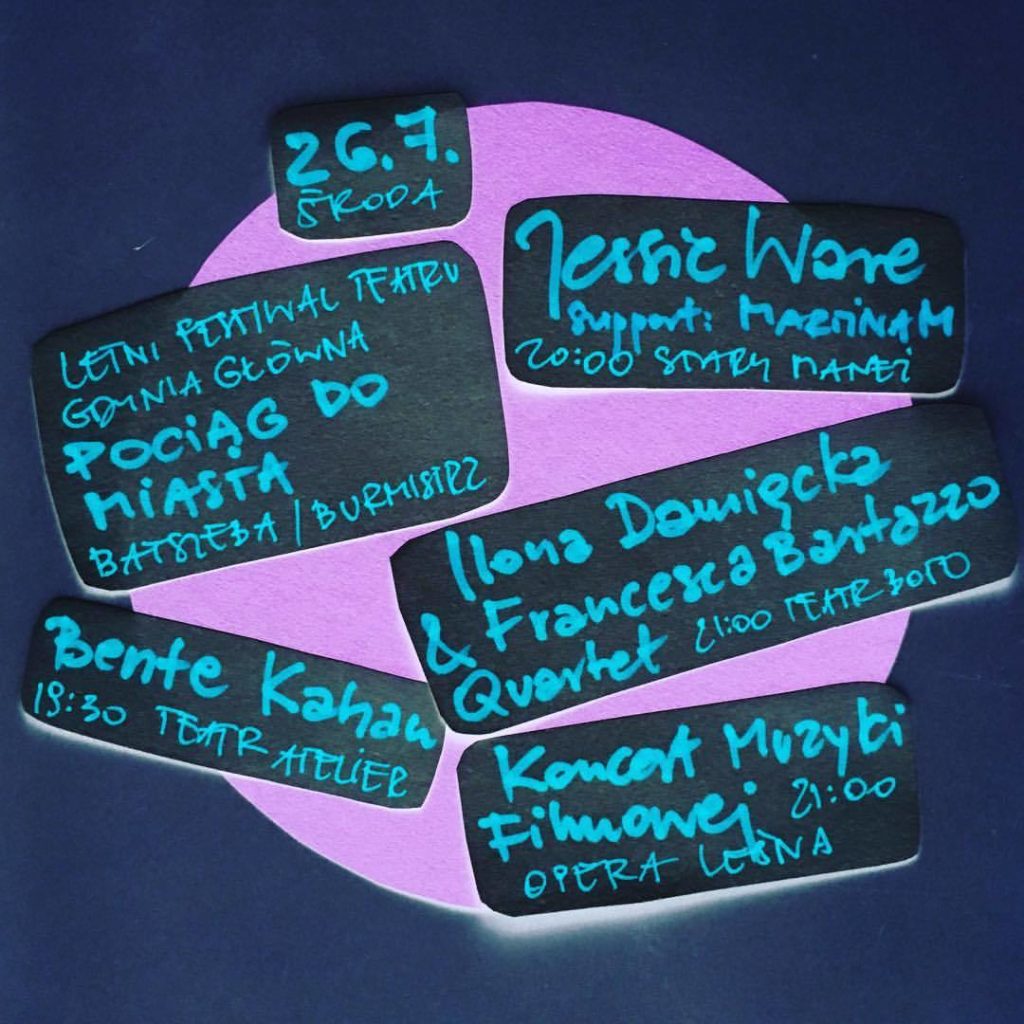 26.7.
ŚRODA
Jessie Ware
support: MARTINA M
20:00 STARY MANEŻ
LETNI FESTIWAL TEATRU
GDYNIA GŁÓWNA
POCIĄG DO
MIASTA
BATSZEBA / BURMISTRZ
Ilona Damięcka
& Francesca Bertazzo
Quartet 21:00 TEATR BOTO
Bente Kahan
19:30 TEATR ATELIER
Koncert Muzyki
Filmowej 21:00
OPERA LEŚNA